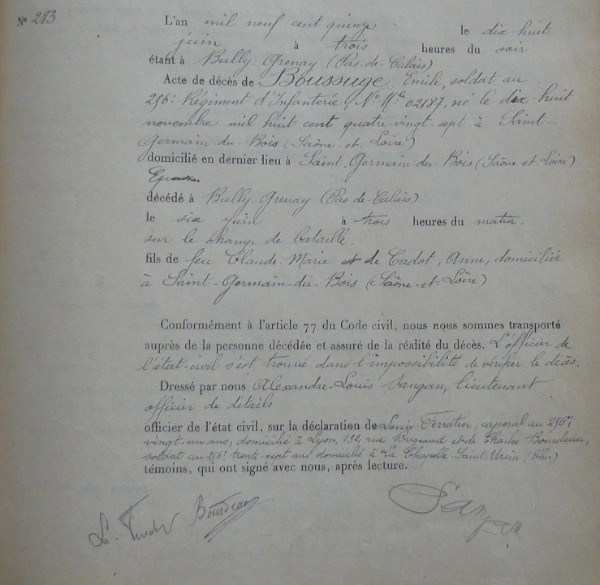 N° 283
L'an mil neuf cent quinze le dix huit
juin à trois heures du soir
étant à Bully Grenay (Pas-de-Calais)
Acte de décès de Boussuge, Emile, soldat au
256e Régiment d'Infanterie, N° Mle 02187, né le dix huit
novembre mil huit cent quatre vingt sept à Saint-
Germain du Bois (Saône et Loire)
domicilié en dernier lieu à Saint-Germain du Bois (Saône et Loire)
décédé à Bully Grenay (Pas de-Calais)
le six juin à trois heures du matin.
sur le champ de bataille.
fils de feu Claude Marie et de Cadot, Anne, domiciliés
à Saint-Germain-du-Bois (Saône-et-Loire)
Conformément à l'article 77 du Code civil, nous nous sommes transporté
auprès de la personne décédée et assuré de la réalité du décès. L'officier de
l'état-civil s'est trouvé dans l'impossibilité de vérifier le décès.
Dressé par nous Alexandre-Louis Sangan, lieutenant
officier de détails
officier de l'état civil, sur la déclaration de Louis Ferratier, caporal au 256e,
vingt-un ans, domicilié à Lyon, 132, rue et de Charles Bourdeau,
soldat au 256e ans domicilié à La Chapelle-Saint-Ursin (Cher)
témoins, qui ont signé avec nous, après lecture.
Bourdeau